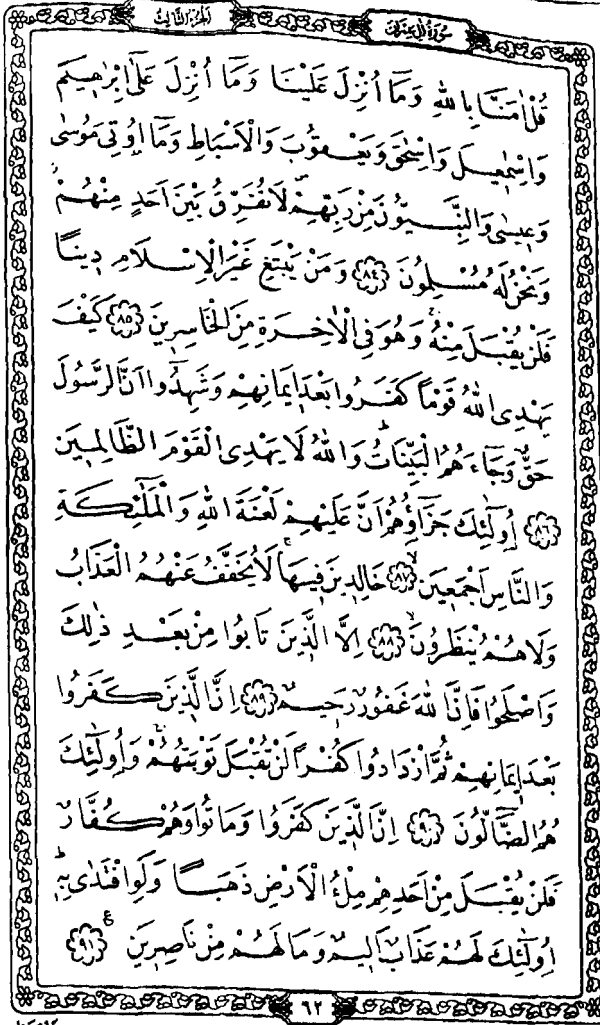 الجزء الثالث
سورة آل عمران
قُلْ اٰمَنَّا بِاللّٰهِ وَمَٓا اُنْزِلَ عَلَيْنَا وَمَٓا اُنْزِلَ عَلٰٓى اِبْرٰه۪يمَ
وَاِسْمٰع۪يلَ وَاِسْحٰقَ وَيَعْقُوبَ وَالْاَسْبَاطِ وَمَٓا اُو۫تِيَ مُوسٰى
وَع۪يسٰى وَالنَّبِيُّونَ مِنْ رَبِّهِمْۖ لَا نُفَرِّقُ بَيْنَ اَحَدٍ مِنْهُمْۘ
وَنَحْنُ لَهُ مُسْلِمُونَ ﴿٨٤﴾ وَمَنْ يَبْتَغِ غَيْرَ الْاِسْلَامِ د۪ينًا
فَلَنْ يُقْبَلَ مِنْهُۚ وَهُوَ فِي الْاٰخِرَةِ مِنَ الْخَاسِر۪ينَ ﴿٨٥﴾ كَيْفَ
يَهْدِي اللّٰهُ قَوْمًا كَفَرُوا بَعْدَ ا۪يمَانِهِمْ وَشَهِدُٓوا اَنَّ الرَّسُولَ
حَقٌّ وَجَٓاءَهُمُ الْبَيِّنَاتُۜ وَاللّٰهُ لَا يَهْدِي الْقَوْمَ الظَّالِم۪ينَ
﴿٨٦﴾ اُو۬لٰٓئِكَ جَزَٓاؤُ۬هُمْ اَنَّ عَلَيْهِمْ لَعْنَةَ اللّٰهِ وَالْمَلٰٓئِكَةِ
وَالنَّاسِ اَجْمَع۪ينَۙ ﴿٨٧﴾ خَالِد۪ينَ ف۪يهَاۚ لَا يُخَفَّفُ عَنْهُمُ الْعَذَابُ
وَلَا هُمْ يُنْظَرُونَۙ ﴿٨٨﴾ اِلَّا الَّذ۪ينَ تَابُوا مِنْ بَعْدِ ذٰلِكَ
وَاَصْلَحُوا فَاِنَّ اللّٰهَ غَفُورٌ رَح۪يمٌ ﴿٨٩﴾ اِنَّ الَّذ۪ينَ كَفَرُوا
بَعْدَ ا۪يمَانِهِمْ ثُمَّ ازْدَادُوا كُفْرًا لَنْ تُقْبَلَ تَوْبَتُهُمْۚ وَاُو۬لٰٓئِكَ
هُمُ الضَّٓالُّونَ ﴿٩٠﴾ اِنَّ الَّذ۪ينَ كَفَرُوا وَمَاتُوا وَهُمْ كُفَّارٌ
فَلَنْ يُقْبَلَ مِنْ اَحَدِهِمْ مِلْءُ الْاَرْضِ ذَهَبًا وَلَوِ افْتَدٰى بِه۪ۜ
اُو۬لٰٓئِكَ لَهُمْ عَذَابٌ اَل۪يمٌ وَمَا لَهُمْ مِنْ نَاصِر۪ينَ ۟ع ﴿٩١﴾
٦٢